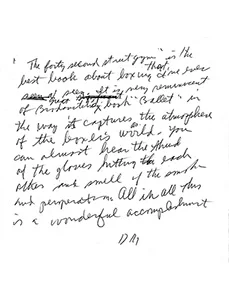 The forty second street gym" is the
best book about boxing that I've ever
seen. It is very reminiscent
of Brodovitch's book "Ballet" in
the way it captures the atmosphere
of the boxing world. You
can almost hear the thud
of the gloves hitting each
other and smell of the smoke
and perspiration. All in all this
is a wonderful accomplishment